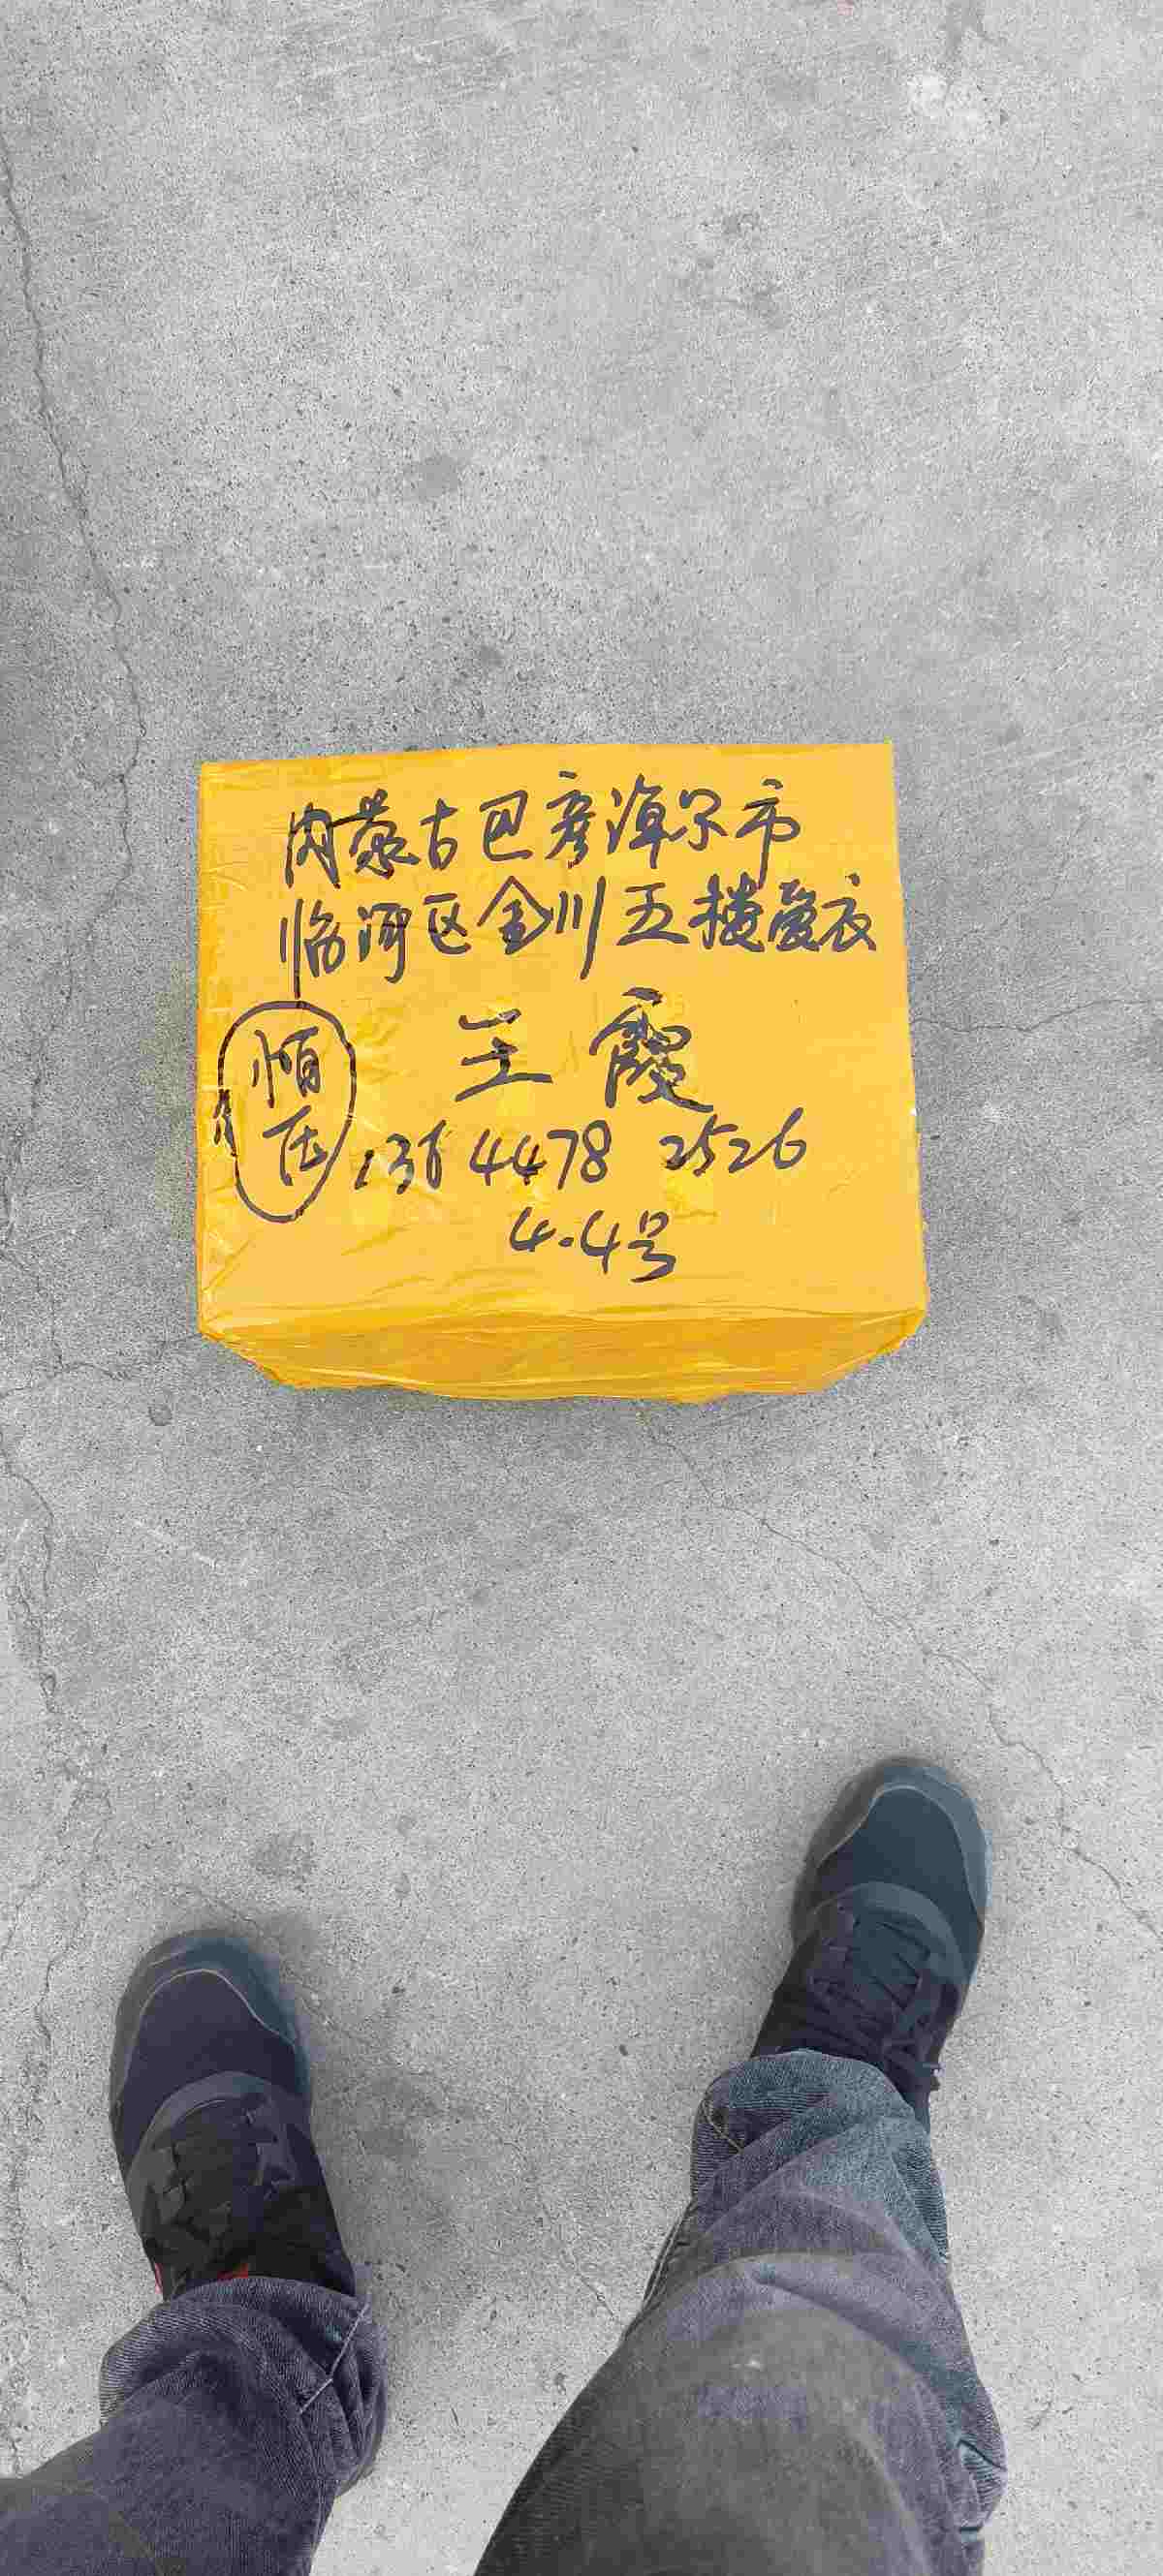 内蒙古巴彦淖尔市
临河区金川五楼爱衣
王霞
136 4478 2526
4.4号